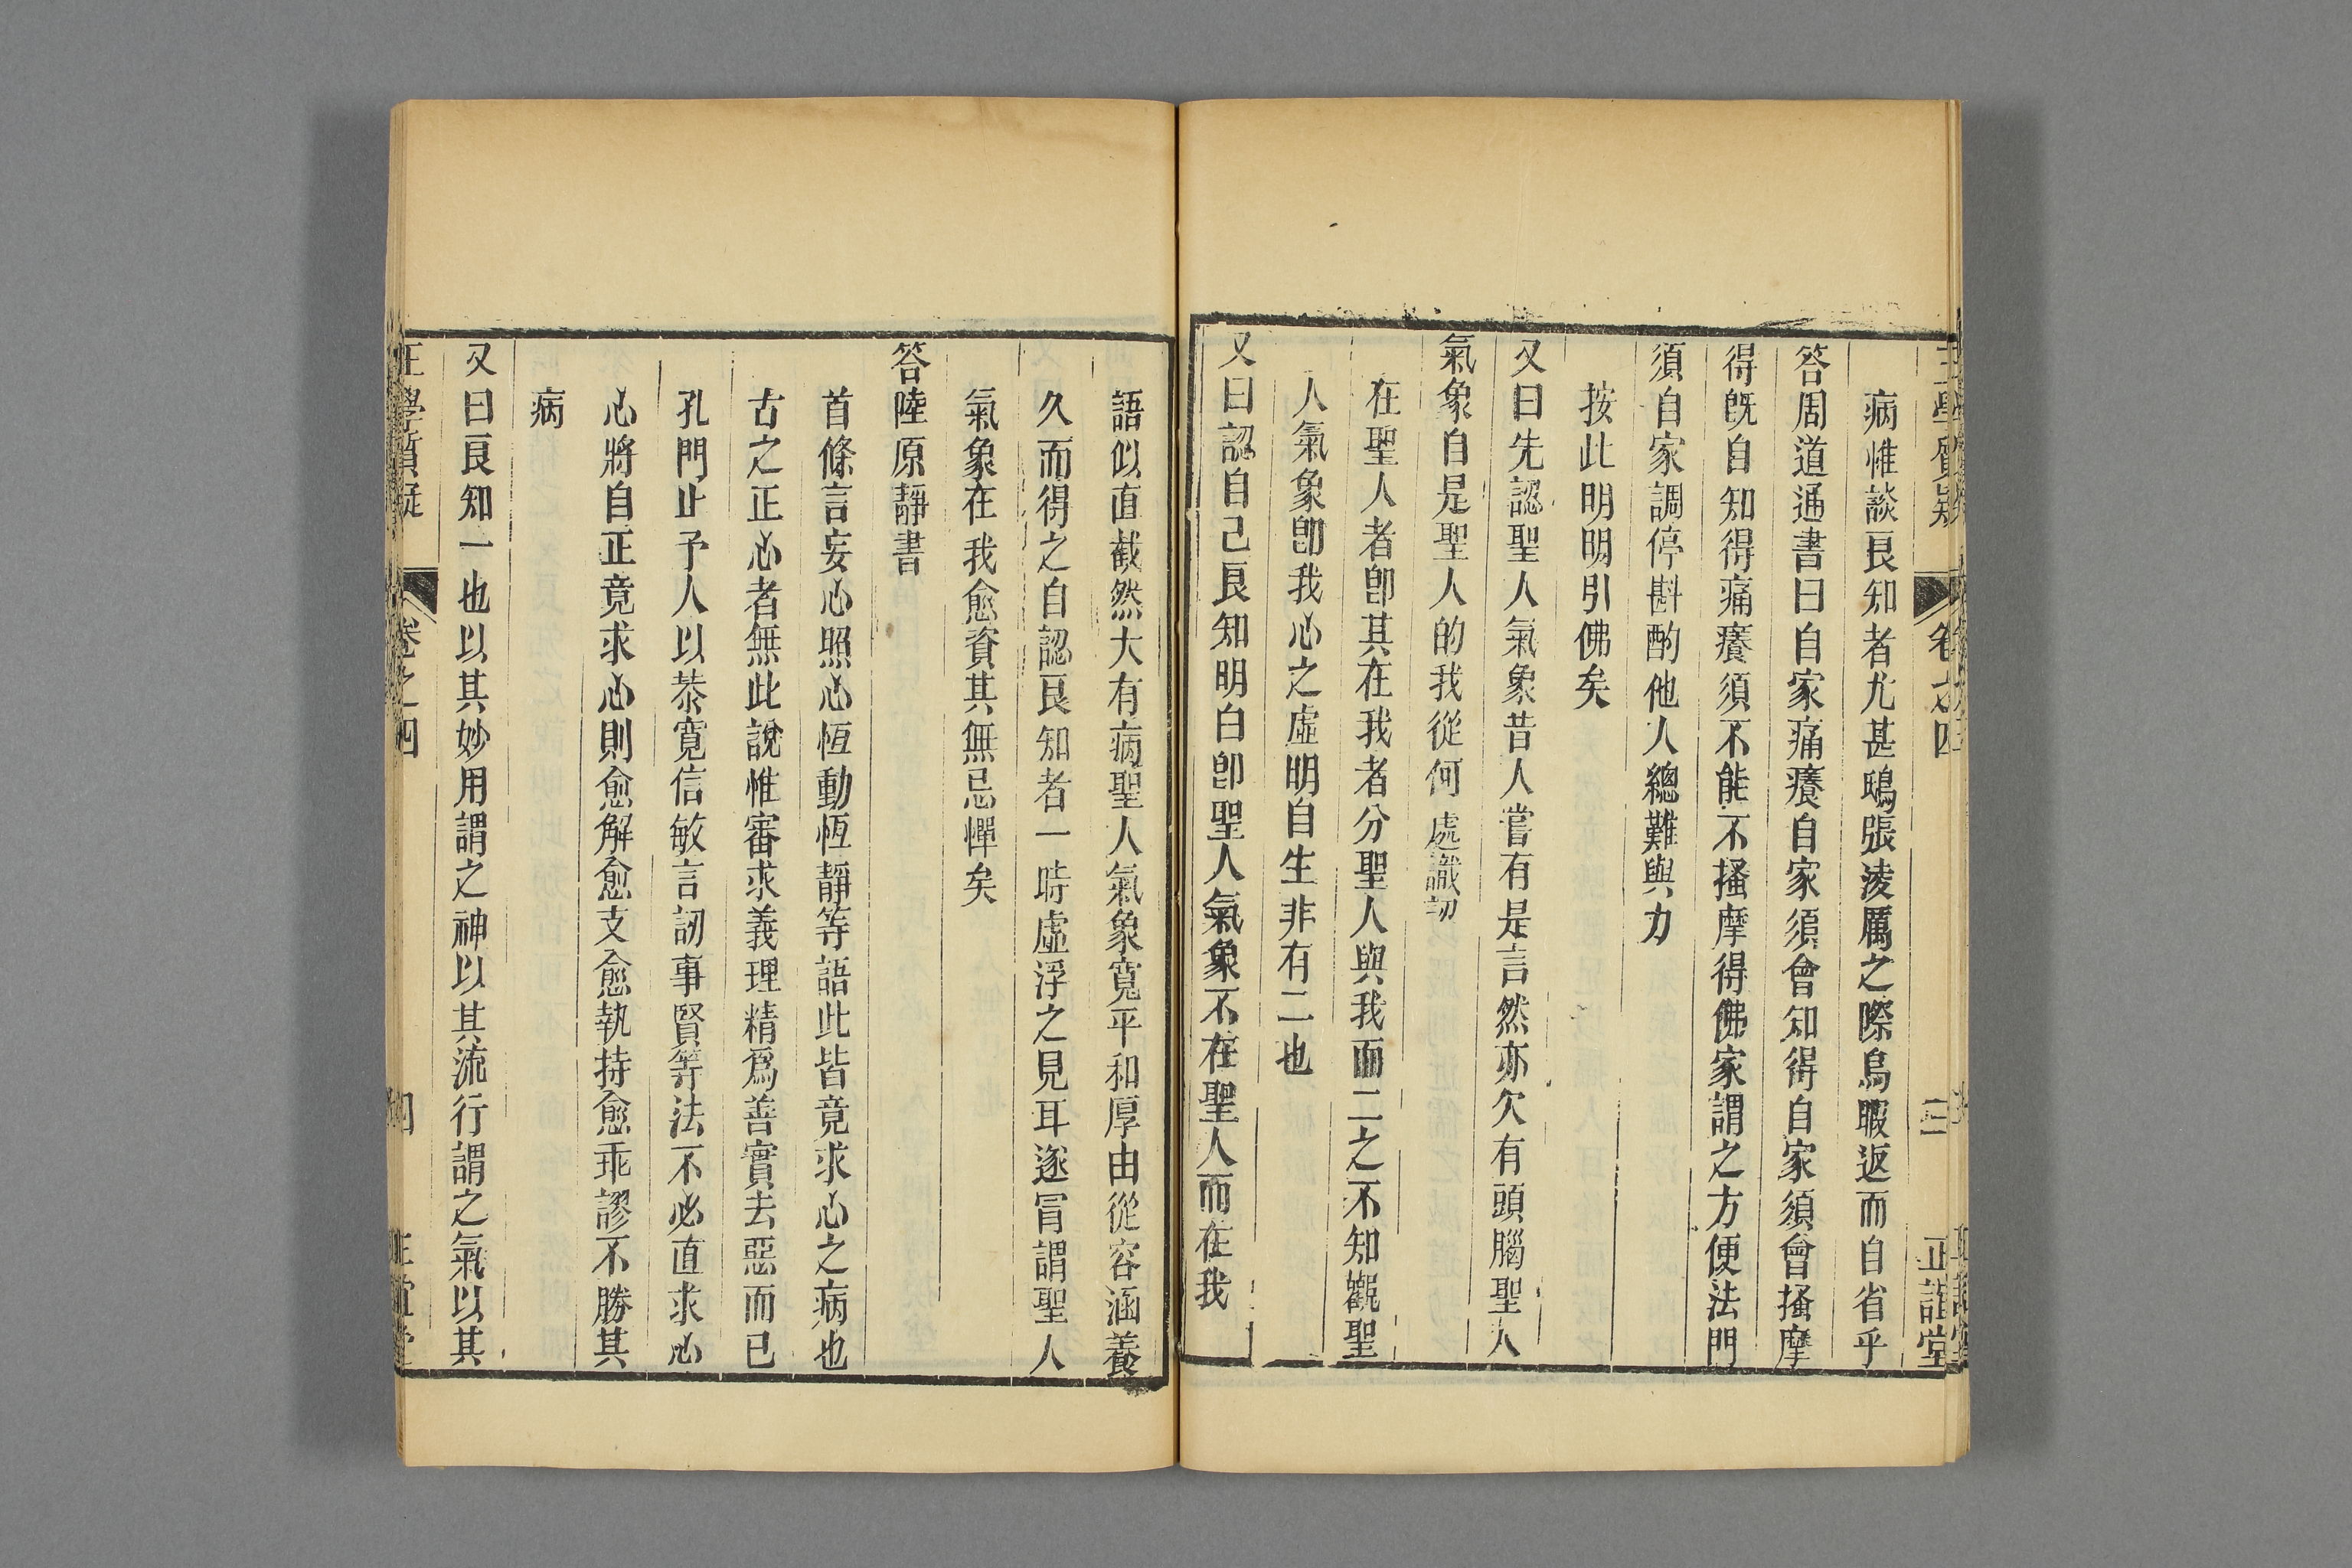 王學質疑 卷之四 三 正誼堂
病惟談良知者尤甚鴟張淩厲之際烏暇返而自省乎
答周道通書曰自家痛癢自家須會知得自家須會搔摩
得旣自知得痛癢須不能不搔摩得佛家謂之方便法門
須自家調停斟酌他人總難與力
按此明明引佛矣
又曰先認聖人氣象昔人嘗有是言然亦欠有頭腦聖人
氣象自是聖人的我從何處識認
在聖人者卽其在我者分聖人與我而二之不知觀聖
人氣象卽我心之虛明自生非有二也
又曰認自己良知明白卽聖人氣象不在聖人而在我
語似直截然大有病聖人氣象寬平和厚由從容涵養
久而得之自認良知者一時虛浮之見耳遂冐謂聖人
氣象在我愈資其無忌憚矣
答陸原靜書
首條言妄心照心恆動恆靜等語此皆竟求心之病也
古之正心者無此說惟審求義理精爲善實去惡而已
孔門止予人以恭寬信敏言訒事賢等法不必直求心
心將自正竟求心則愈解愈支愈執持愈乖謬不勝其
病
又曰良知一也以其妙用謂之神以其流行謂之氣以其
王學質疑 卷之四 四 正誼堂